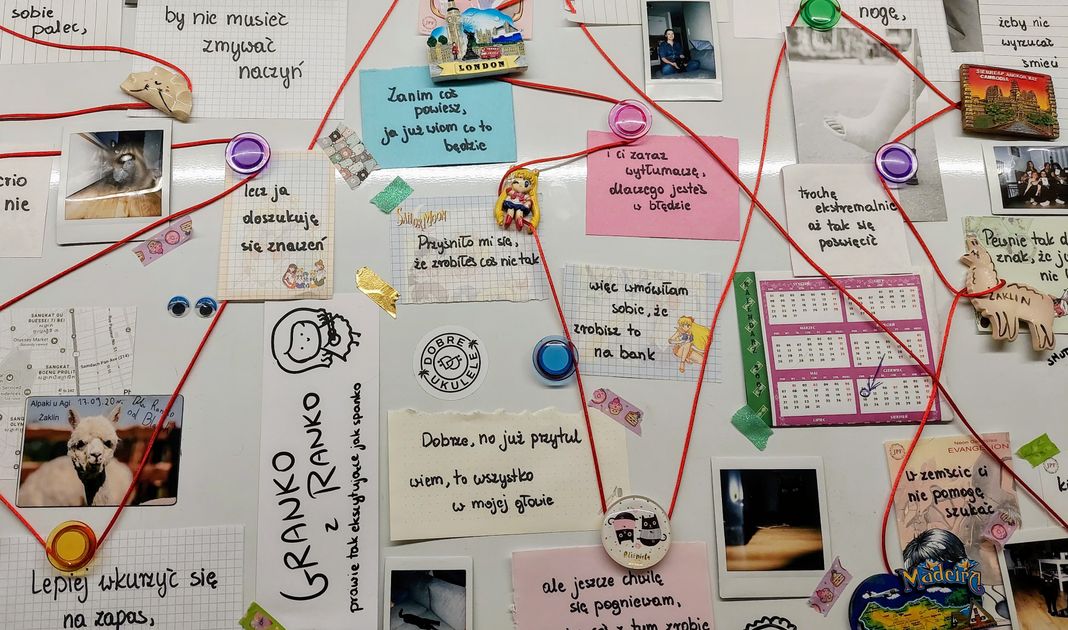 sobie
palec,
by nie musieć
zmywać
naczyń
LONDON
nogę,
żeby nie
wyrzucać
śmieci
SIEMREAP ANGKOR WAT
CAMBODIA
Zanim coś
powiesz,
ja już wiem co to
będzie
i ci zaraz
wytłumaczę,
dlaczego jesteś
w błędzie
nie
lecz ja
doszukuję
się znaczeń
Sailor Moon
Przyśniło mi się,
że zrobiłeś coś nie tak
trochę
ekstremalnie
aż tak się
poświęcić
Pewnie tak d
znak, że ju
nie
ZAKLIN
więc wmówiłam
sobie, że
zrobisz to
na bank
SANGKAT
Samdach Pan (214)
SANGKAT
BOENG PROLIT
DOBRE
UKULELE
GRANKO
z
RANKO
prawie tak ekscytujące jak spanko
Alpaki u Agi 13.09.20
Zaklin
Dobrze, no już przytul
wiem, to wszystko
w mojej głowie
EVANGELION
W zemście ci
nie pomogę
szukać
Madeira
Lepiej wkurzyć się
na zapas,
ale jeszcze chwilę
się pogniewam,